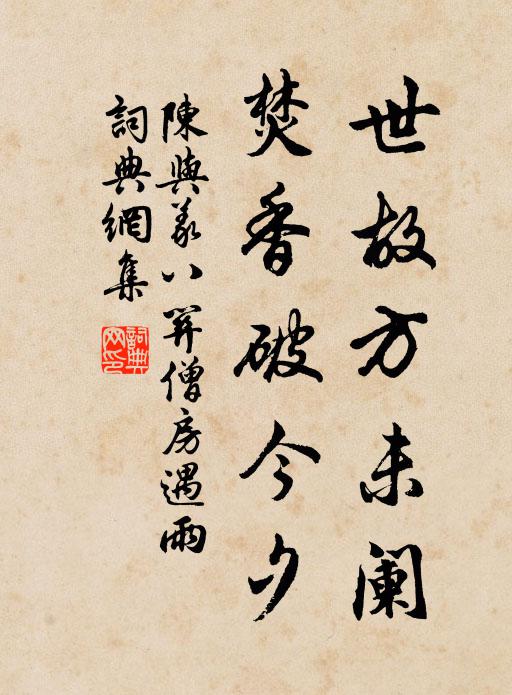 世故方未阑
焚香破今夕
陳與義八關僧房遇雨
詞典網集
詞典
网印